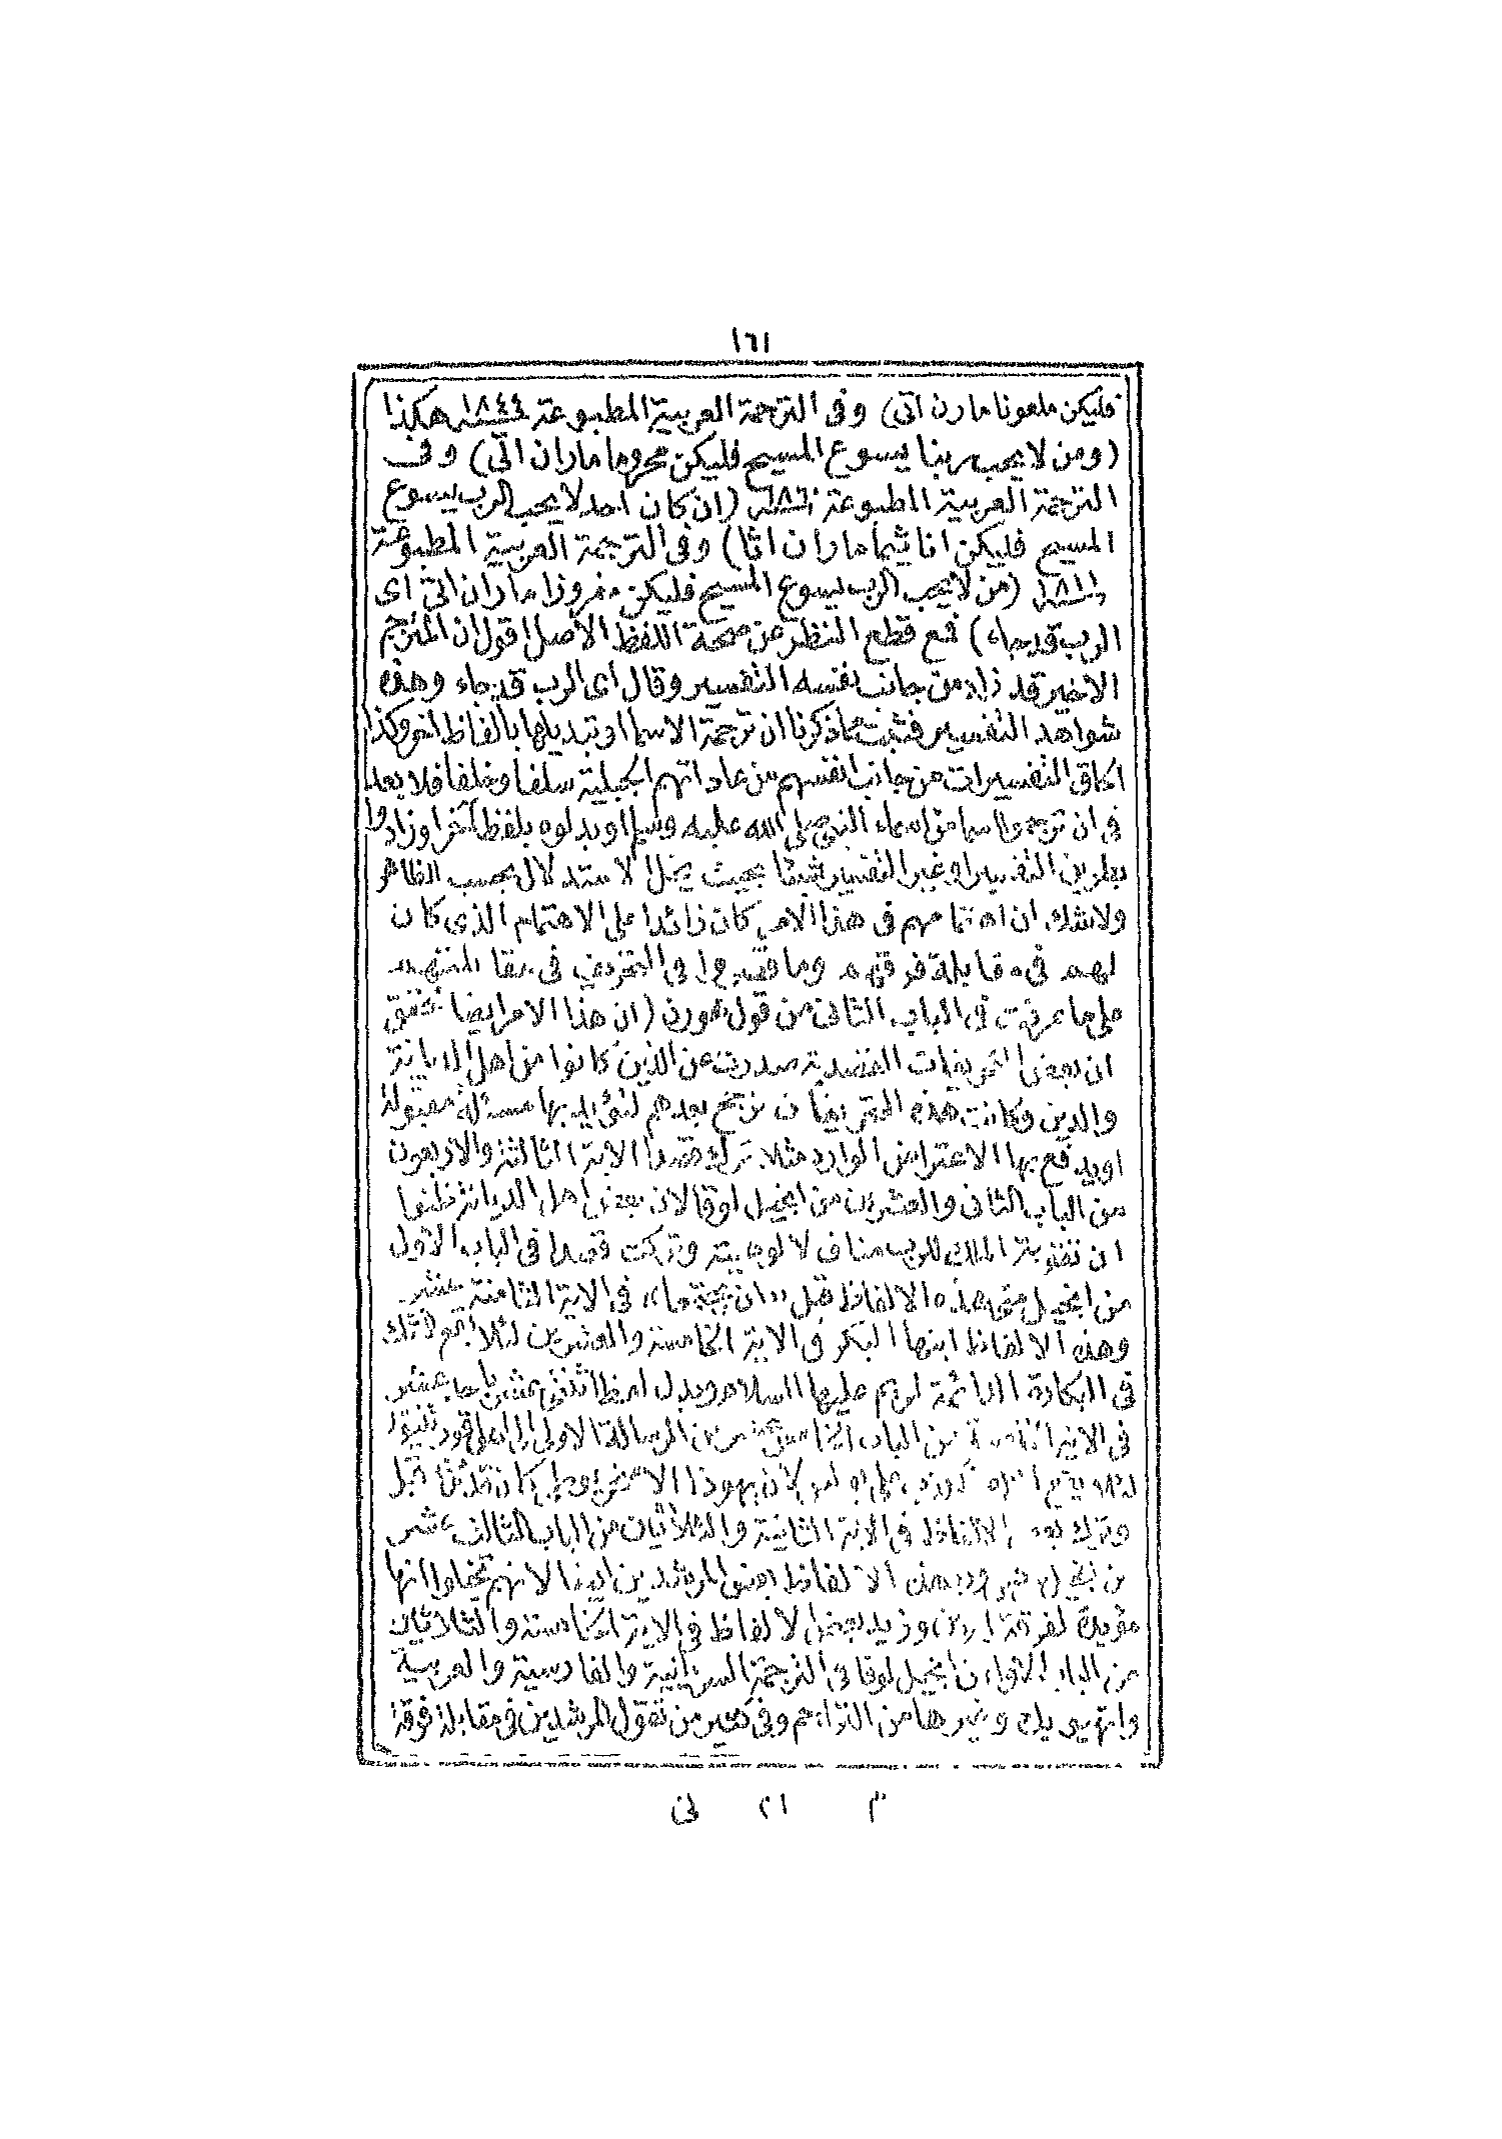 ١٦١
فليكن ملعونا مارن اتى) وفى الترجمة العربية المطبوعة ١٨٤٤ هكذا
(ومن لا يحب ربنا يسوع المسيح فليكن محروما ماران اتى) وفى
الترجمة العربية المطبوعة ١٨٦٠ (ان كان احد لا يحب الرب يسوع
المسيح فليكن اناثيما ماران اثا) وفى الترجمة العربية المطبوعة
١٨١١ (من لا يحب الرب يسوع المسيح فليكن مفروزا ماران اتى اى
الرب قد جاء) فمع قطع النظر عن صحة اللفظ الاصل اقول ان المترجم
الاخير قد زاد من جانب نفسه التفسير وقال اى الرب قد جاء وهذه
شواهد التفسير فثبت مما ذكرنا ان ترجمة الاسما او تبديلها بالفاظ اخر وكذا
الحاق التفسيرات من جانب انفسهم من عاداتهم الجبلية سلفا وخلفا فلا بعد
فى ان ترجموا اسما من اسماء النبى صلى الله عليه وسلم او بدلوه بلفظ آخر او زادوا
بطريق التفسير او غير التفسير شيئا بحيث يخل الاستدلال بحسب الظاهر
ولا شك ان اهتمامهم فى هذا الامر كان زائدا على الاهتمام الذى كان
لهم فى مقابلة فرقهم وما قصروا فى التحريف فى مقابلتهم
على ما عرفت فى الباب الثانى من قول هورن (ان هذا الامر ايضا محقق
ان بعض التحريفات القصدية صدرت عن الذين كانوا من اهل الديانة
والدين وكانت هذه التحريفات ترجح بعدهم لتؤيد بها مسئلة مقبولة
او يدفع بها الاعتراض الوارد مثلا ترك قصدا الاية الثالثة والاربعون
من الباب الثانى والعشرين من انجيل لوقا لان بعض اهل الديانة ظنوا
ان تقوية الملك للرب مناف لالوهيته وتركت قصدا فى الباب الاول
من انجيل متى هذه الالفاظ قبل «ان يجتمعا» فى الاية الثامنة عشر
وهذه الالفاظ ابنها البكر فى الاية الخامسة والعشرين لئلا يقع الشك
فى البكارة الدائمة لمريم عليها السلام وبدل لفظ اثنى عشر باحد عشر
فى الاية الخامسة من الباب الخامس عشر من الرسالة الاولى الى اهل قورنثيوس
لئلا يقع الزام الكذب على بولس لان يهوذا الاسخريوطى كان قد مات قبل
وترك بعض الالفاظ فى الاية الثانية والثلاثين من الباب الثالث عشر
من انجيل مرقس ورد هذه الالفاظ بعض المرشدين ايضا لانهم تخيلوا انها
مؤيدة لفرقة ايرين وزيد بعض الالفاظ فى الاية الخامسة والثلاثين
من الباب الاول من انجيل لوقا فى الترجمة السريانية والفارسية والعربية
واتهيوپك وغيرها من التراجم وفى كثير من نقول المرشدين فى مقابلة فرقة
م ٢١ نى